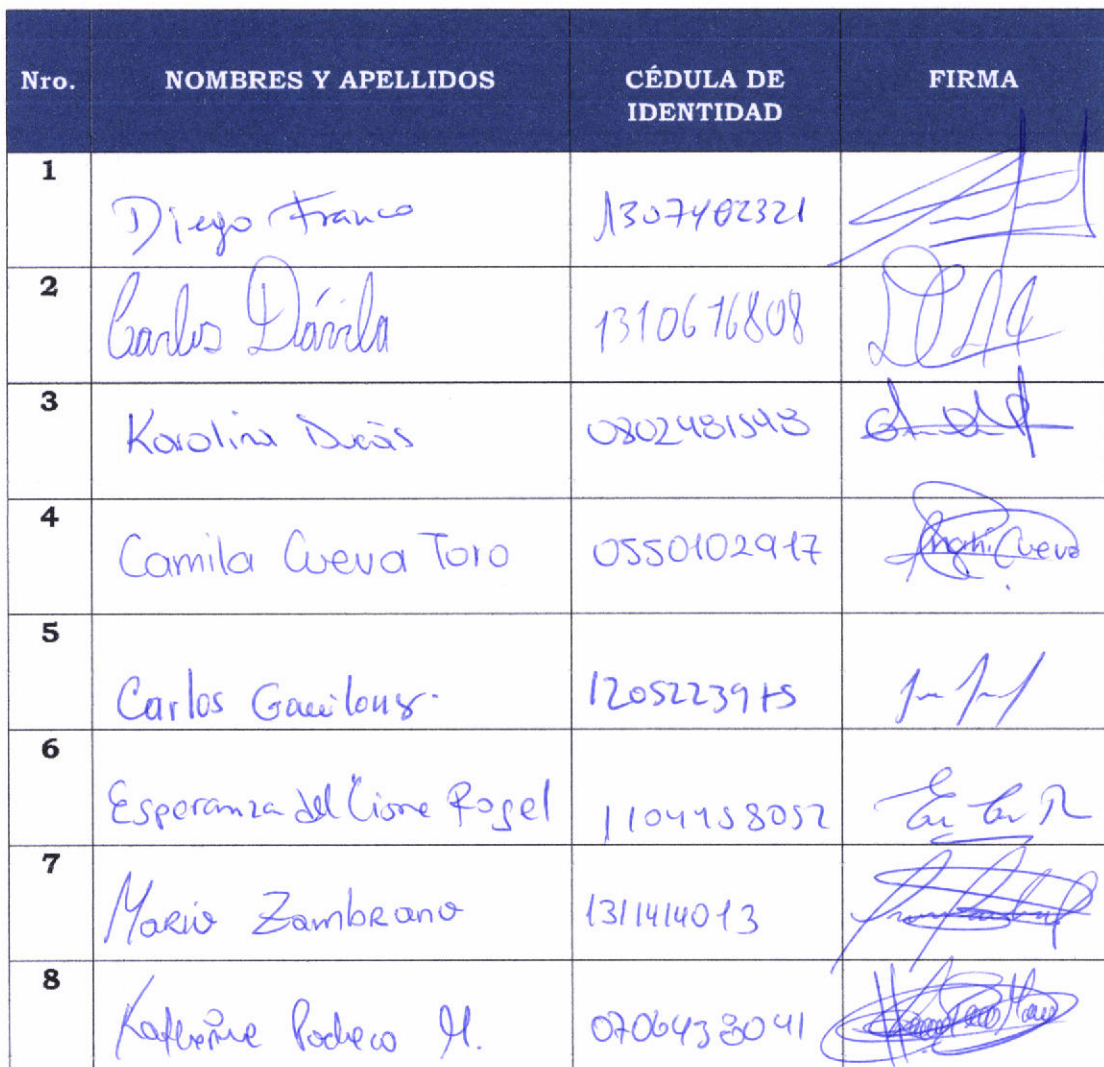 Nro. NOMBRES Y APELLIDOS CÉDULA DE IDENTIDAD FIRMA
1 Diego Franco 1307402321
2 Carlos Dávila 1310676808
3 Karolina 0802481548
4 Camila Cueva Toro 0550102917 Anghi Cueva
5 Carlos 1205223975
6 Esperanza del Cisne Rogel 1104458052
7 Mario Zambrano 1311414013
8 Katherine Pacheco M. 0706438041